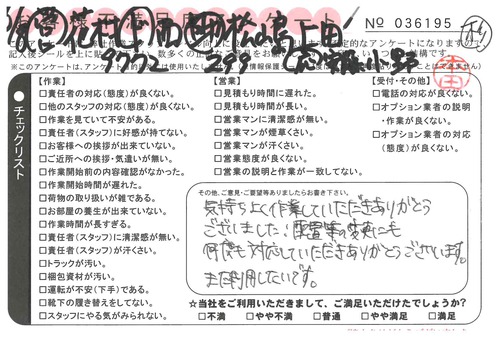 営 花村 西 松嶋 上田
No 036195
※このアンケートは、
【作業】
□責任者の対応(態度)が良くない。
□他のスタッフの対応(態度)が良くない。
□作業を見ていて不安がある。
□責任者(スタッフ)に好感が持てない。
□お客様への挨拶が出来ていない。
□ご近所への挨拶・気遣いが無い。
□作業開始前の内容確認がなかった。
□作業開始時間が遅れた。
□荷物の取り扱いが雑である。
□お部屋の養生が出来ていない。
□作業時間が長すぎる。
□責任者(スタッフ)に清潔感が無い。
□責任者(スタッフ)が汗くさい。
□トラックが汚い。
□梱包資材が汚い。
□運転が不安(下手)である。
□靴下の履き替えをしてない。
□スタッフにやる気がみられない。
【営業】
□見積もり時間に遅れた。
□見積もり時間が長い。
□営業マンに清潔感が無い。
□営業マンが煙草くさい。
□営業マンが汗くさい。
□営業態度が良くない。
□営業の説明と作業が一致してない。
【受付・その他】
□電話の対応が良くない。
□オプション業者の説明
・作業が良くない。
□オプション業者の対応
(態度)が良くない。
チェックリスト
その他、ご意見・ご要望等ありましたらお書き下さい。
気持ちよく作業していただきありがとう
ございました。配置等の変更にも
何度も対応していただきありがとうございます。
また利用したいです。
☆当社をご利用いただきまして、ご満足いただけたでしょうか?
□不満 □やや不満 □普通 □やや満足 □満足